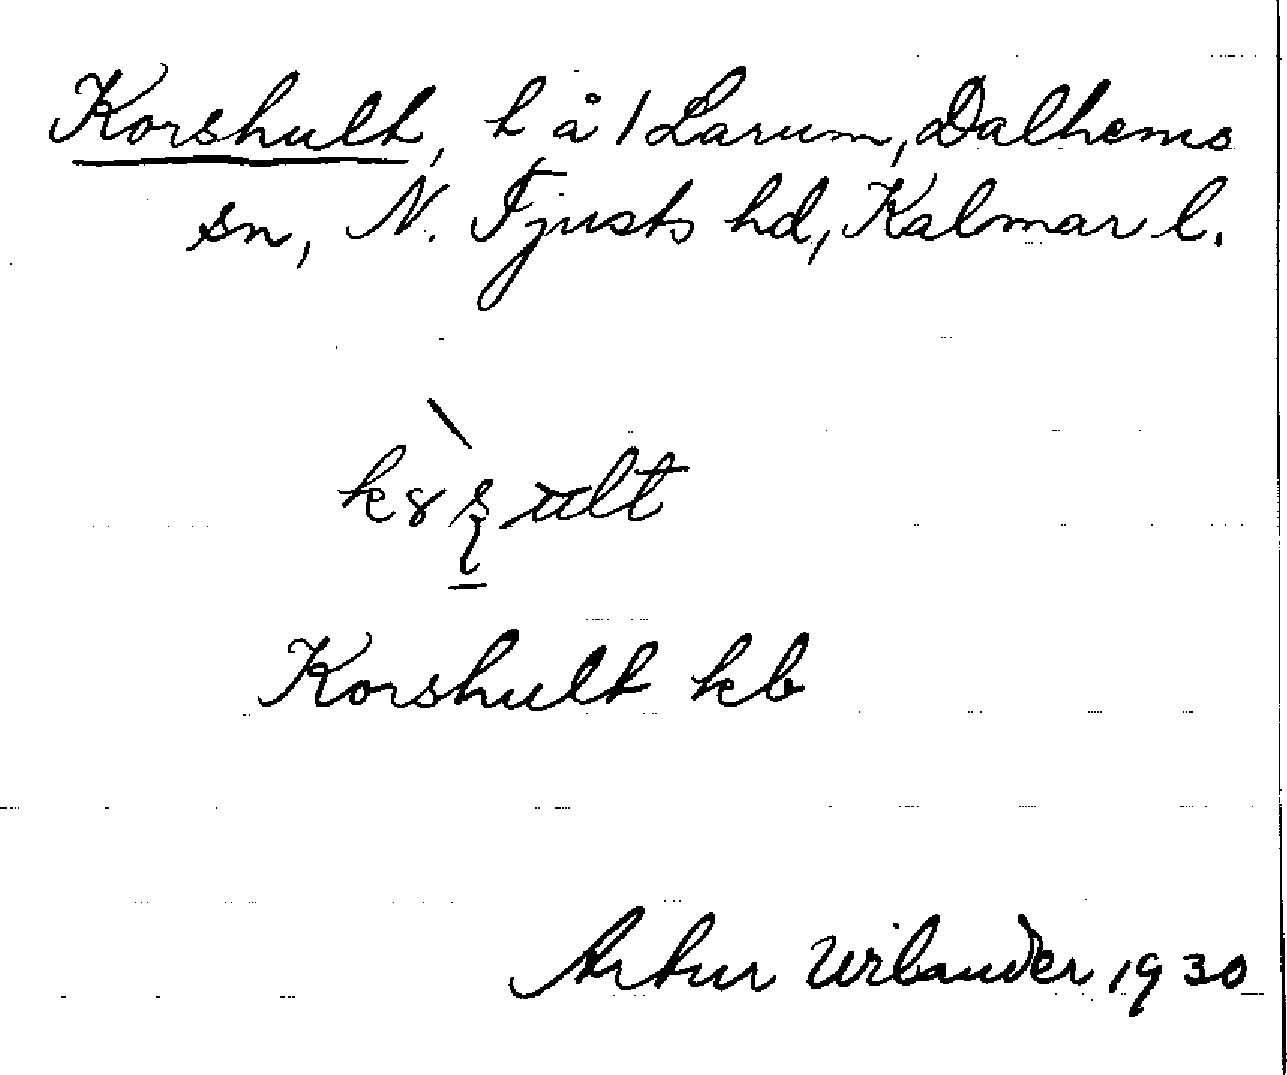 Korshult, t å 1 Larum, Dalhems
sn, N. Tjusts hd, Kalmar l.
Korshult kb
Artur Wilander 1930